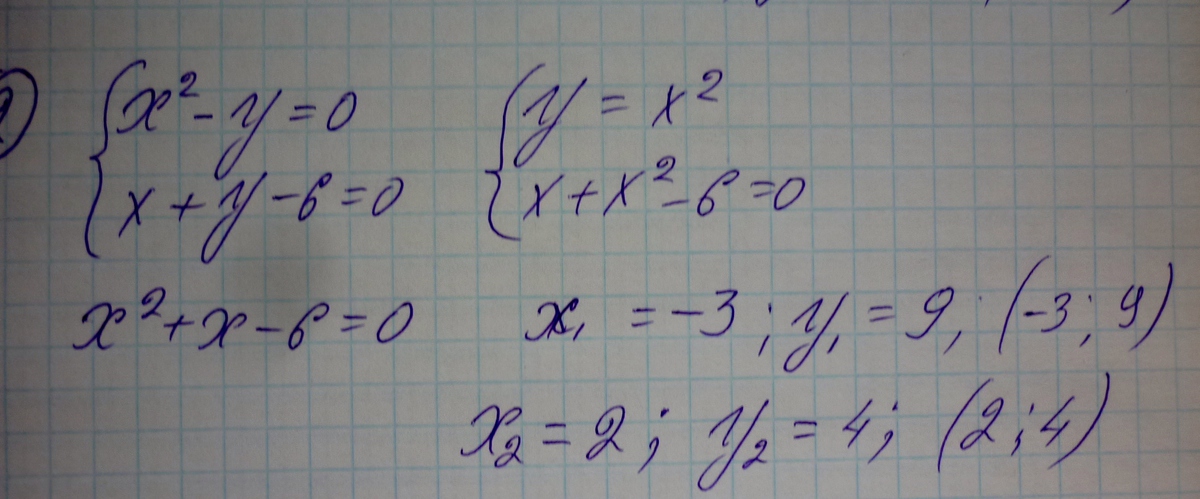 { x² - y = 0 { y = x²
x + y - 6 = 0 x + x² - 6 = 0
x² + x - 6 = 0 x₁ = -3; y₁ = 9; (-3; 9)
x₂ = 2; y₂ = 4; (2; 4)